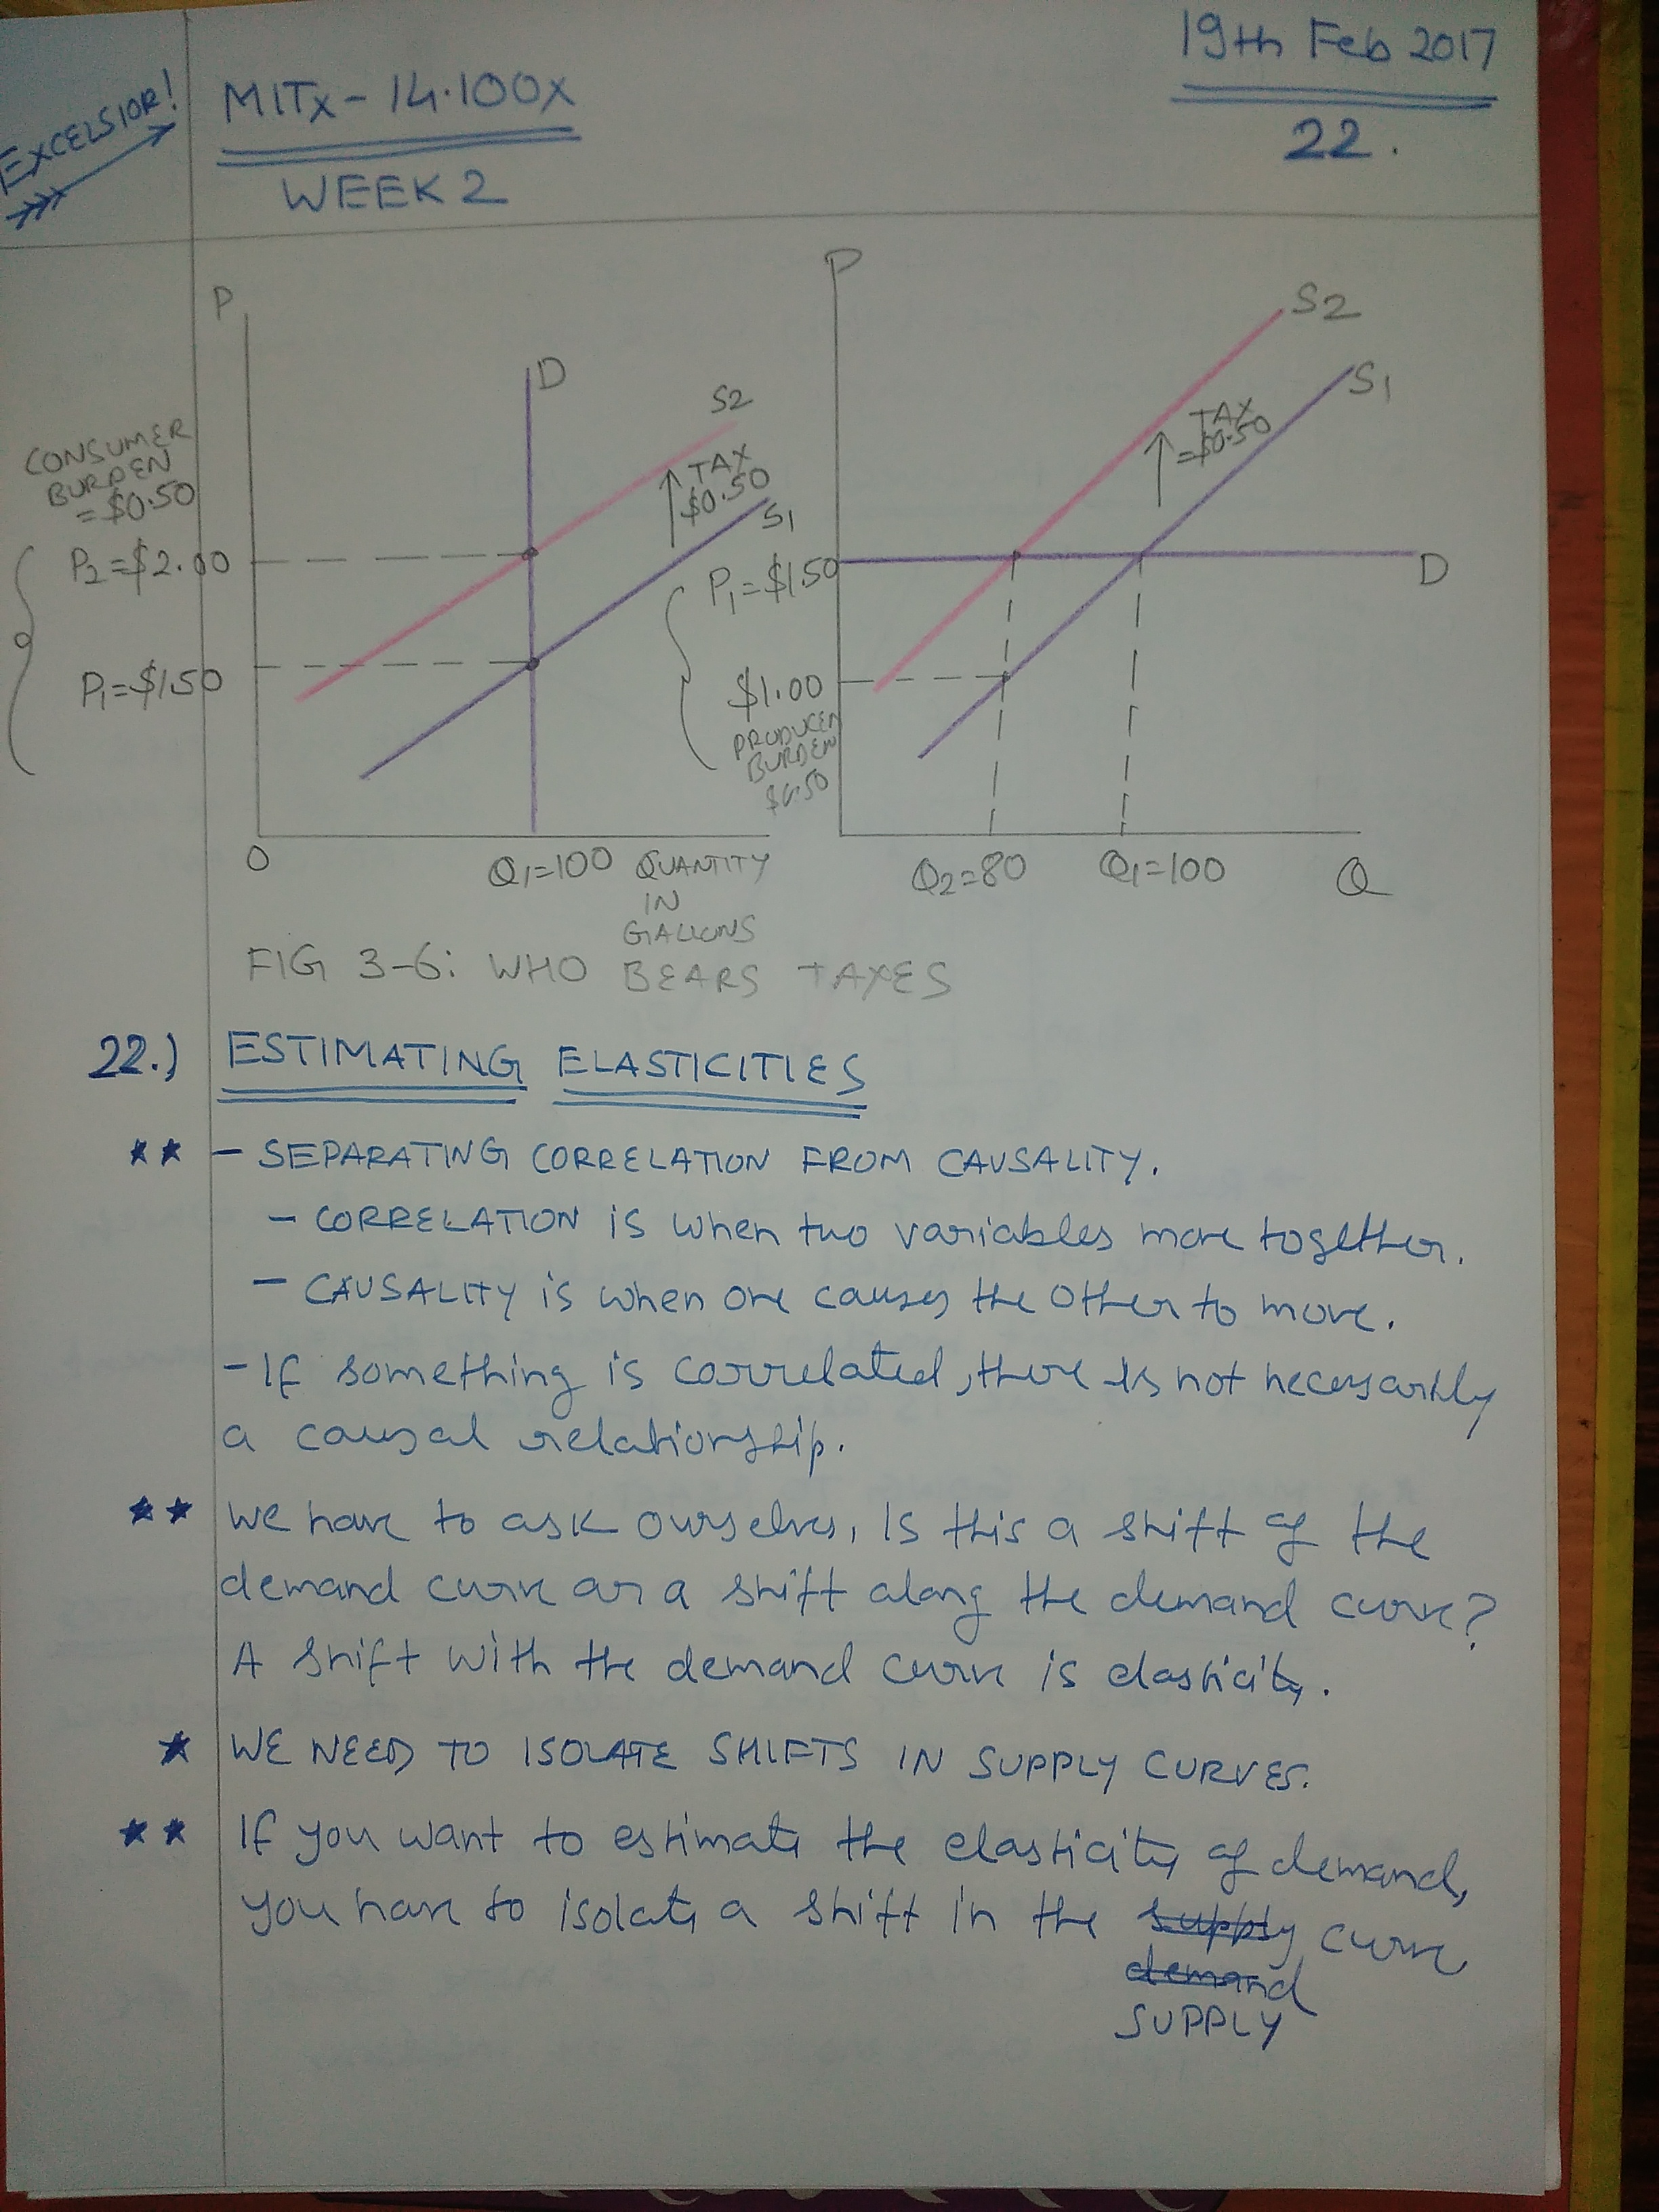 EXCELSIOR!
MITx - 14.100x
WEEK 2
19th Feb 2017
22.
P
D
S2
TAX
$0.50
S1
CONSUMER
BURDEN
= $0.50
P2 = $2.00
P1 = $1.50
O
Q1=100
QUANTITY
IN
GALLONS
P
S2
S1
TAX
= $0.50
P1 = $1.50
D
$1.00
PRODUCER
BURDEN
$0.50
Q2=80
Q1=100
Q
FIG 3-6: WHO BEARS TAXES
22.) ESTIMATING ELASTICITIES
** - SEPARATING CORRELATION FROM CAUSALITY.
- CORRELATION is when two variables move together.
- CAUSALITY is when one causes the other to move.
- If something is correlated, there is not necessarily
a causal relationship.
** We have to ask ourselves, Is this a shift of the
demand curve or a shift along the demand curve?
A shift with the demand curve is elasticity.
* WE NEED TO ISOLATE SHIFTS IN SUPPLY CURVES.
** If you want to estimate the elasticity of demand,
you have to isolate a shift in the supply curve
demand
SUPPLY